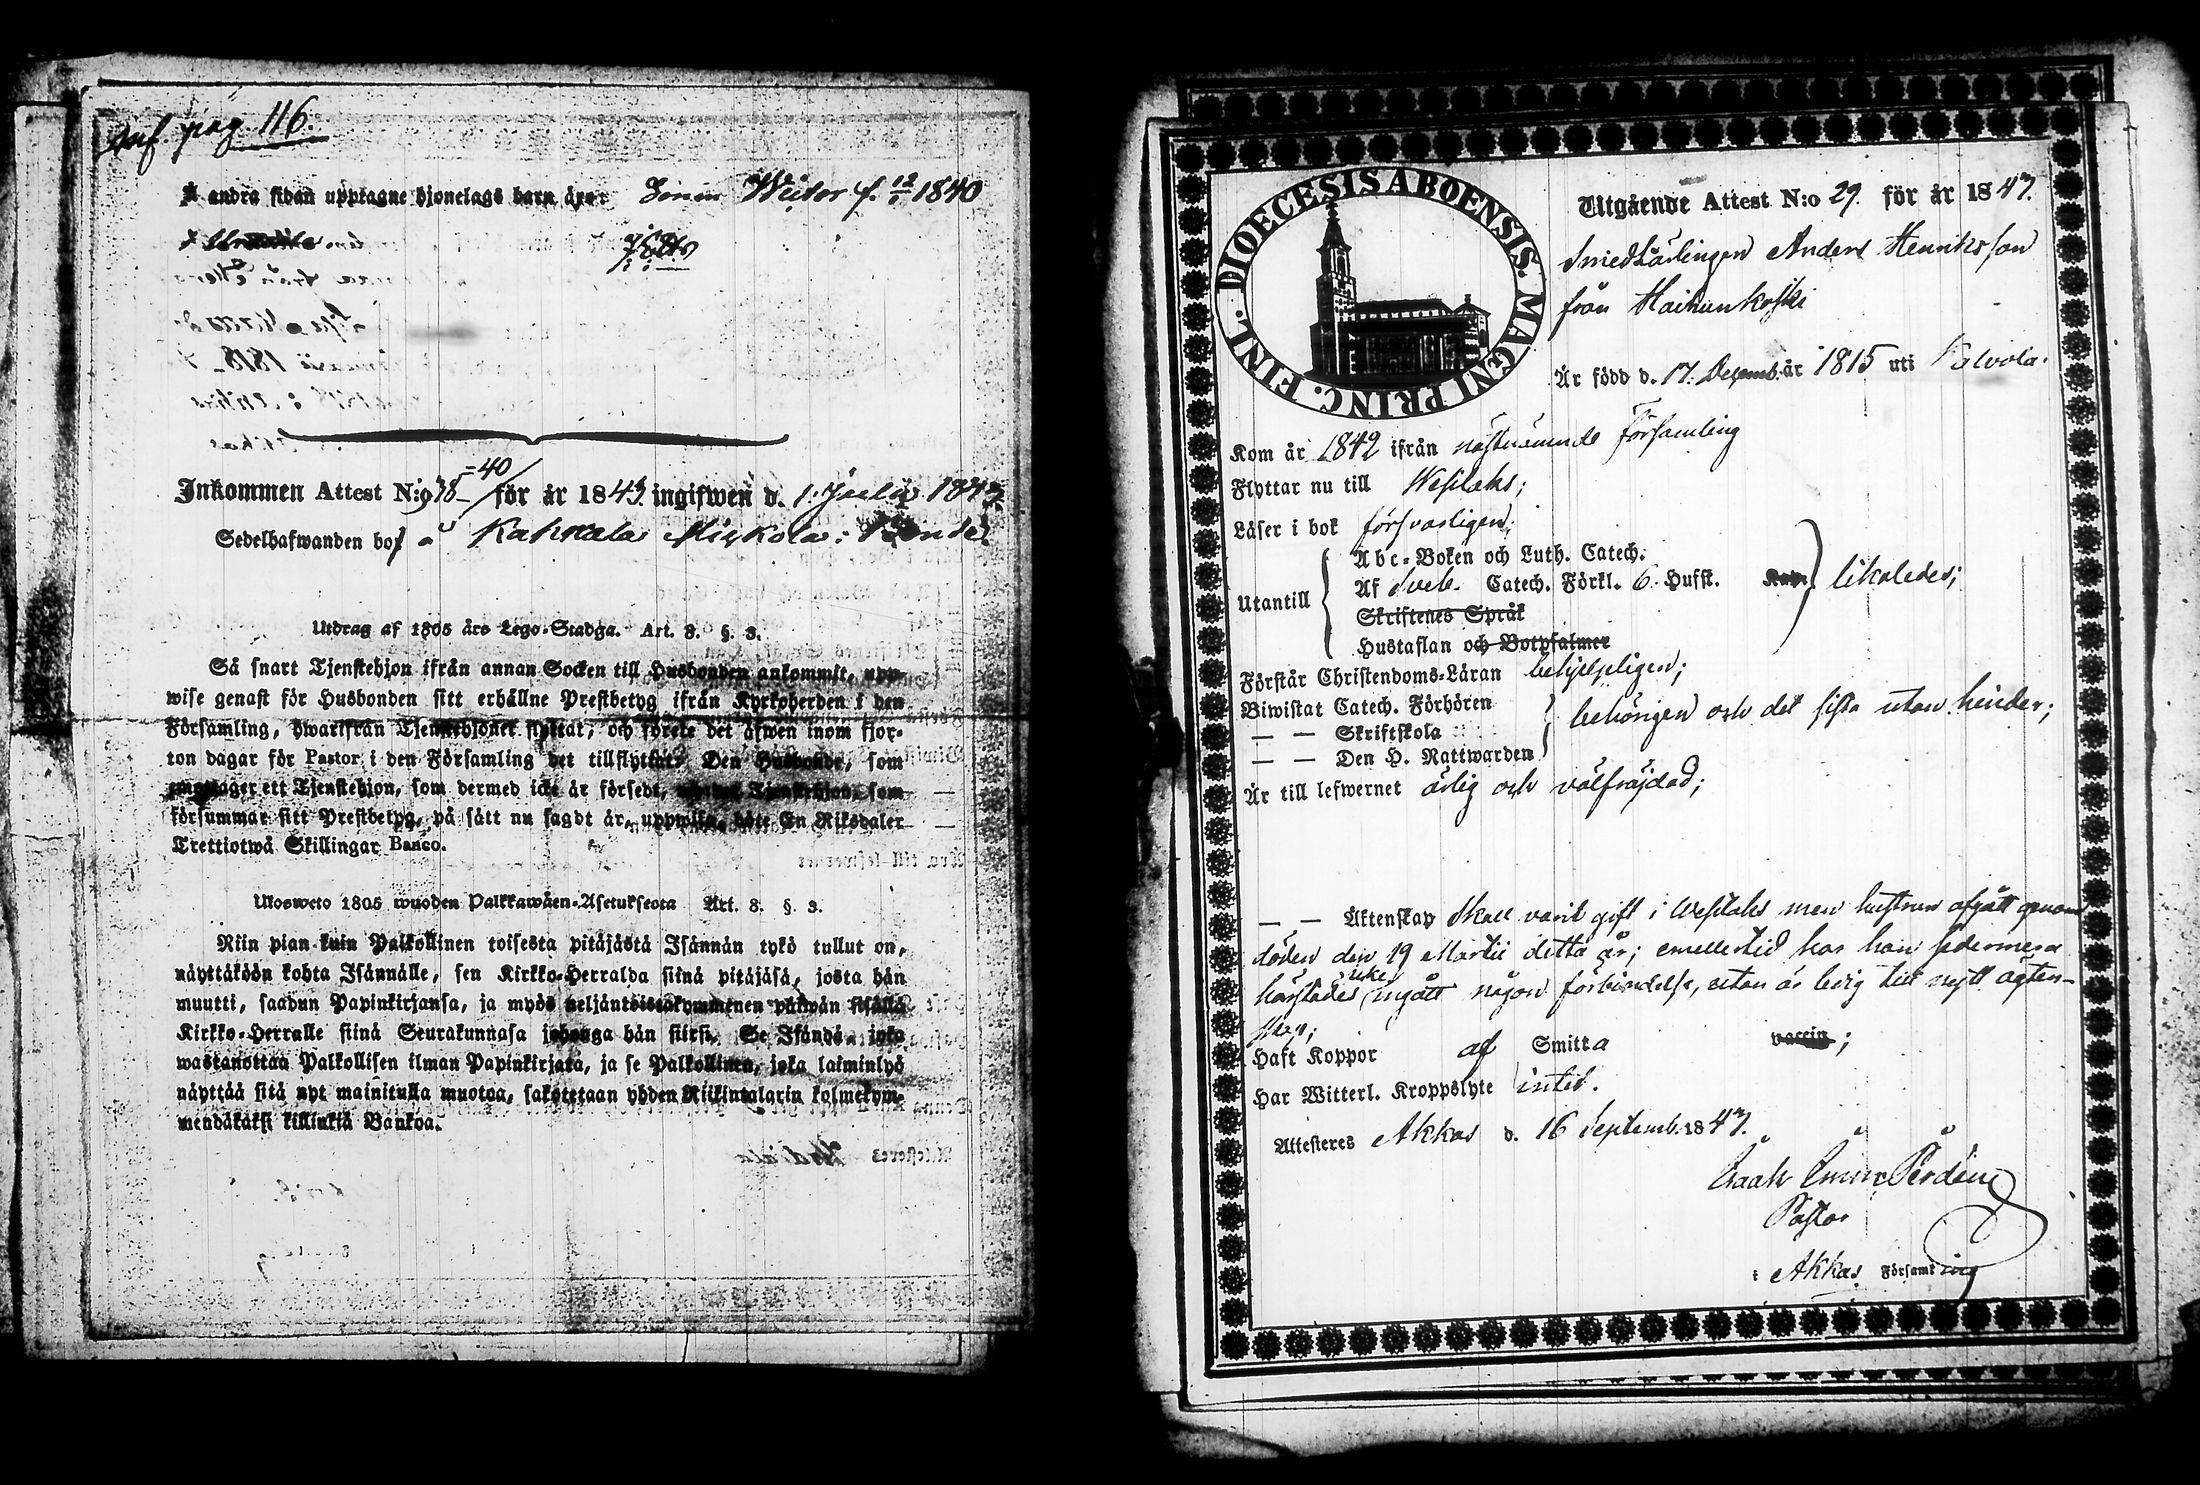 Inf. pag. 116.
Å andra sidan upptagne hjonelags barn äro: Sonen Wictor f. 12/1840
Inkommen Attest N:o 38–40 för år 1843 ingifwen d. 1 Julii 1843.
Sedelhafwanden bor å Kahkala Miekola: Bonde.
Utdrag af 1805 års Lego-Stadga. Art. 8. §. 3.
Så snart Tjenstehjon ifrån annan Socken till Husbonden ankommit, upp-
wise genast för Husbonden sitt erhållne Prestbetyg ifrån Kyrkoherden i den
Församling, hwarifrån Tjenstehjonet flyttat, och förete det äfwen inom fjor-
ton dagar för Pastor i den Församling det tillflyttat. Den Husbonde, som
emottager ett Tjenstehjon, som dermed icke är försedt, Tjenstehjon, som
försummar sitt Prestbetyg, på sätt nu sagdt är, uppwisa, böte En Riksdaler
Trettiotwå Skillingar Banco.
Ulosweto 1805 wuoden Palkkawäen-Asetuksesta Art. 8. §. 3.
Niin pian kuin Palkollinen toisesta pitäjästä Isännän tykö tullut on,
näyttäköön kohta Isännälle, sen Kirkko-Herralda siinä pitäjäsä, josta hän
muutti, saadun Papinkirjansa, ja myös neljäntoistakymmenen päiwän sisällä
Kirkko-Herralle siinä Seurakunnasa johonga hän siirsi. Se Isändä, joka
wastanottaa Palkollisen ilman Papinkirjata, ja se Palkollinen, joka laiminlyö
näyttää sitä nyt mainitulla muotoa, sakotetaan yhden Riikintalarin kolmekym-
mendäkaksi killinkiä Bankoa.
DIOECESIS ABOENSIS. MAGNI PRINC. FINL.
Utgående Attest N:o 29. för år 1847.
Smedkärlingen Anders Henriksson
från Haihunkoski
Är född d. 17. Decemb. år 1815 uti Kalvola.
Kom år 1842 ifrån nästnämnde Församling
Flyttar nu till Wesilaks;
Läser i bok försvarligen;
Utantill
Abc-Boken och Luth. Catech.
Af Sveb. Catech. Förkl. 6 Hufst. Kap. likaledes;
Skriftenes Språk
Hustaflan och Botpsalmer
Förstår Christendoms-Läran behjelpligen;
Biwistat Catech. Förhören
— — Skriftskola behörigen och det sista utan hinder;
— — Den H. Nattwarden
Är till lefwernet ärlig och välfräjdad;
— — Äktenskap Skall varit gift i Wesilaks men hustrun afgått genom
döden den 19 Martii detta år; emellertid har han sedermera
härstädes icke ingått någon förbindelse, utan är ledig till nytt ägten-
skap;
Haft Koppor af Smitta vaccin;
Har Witterl. Kroppslyte intet.
Attesteres Akkas d. 16 Septemb. 1847.
Isaak Perdén
Pastor
i Akkas Församling